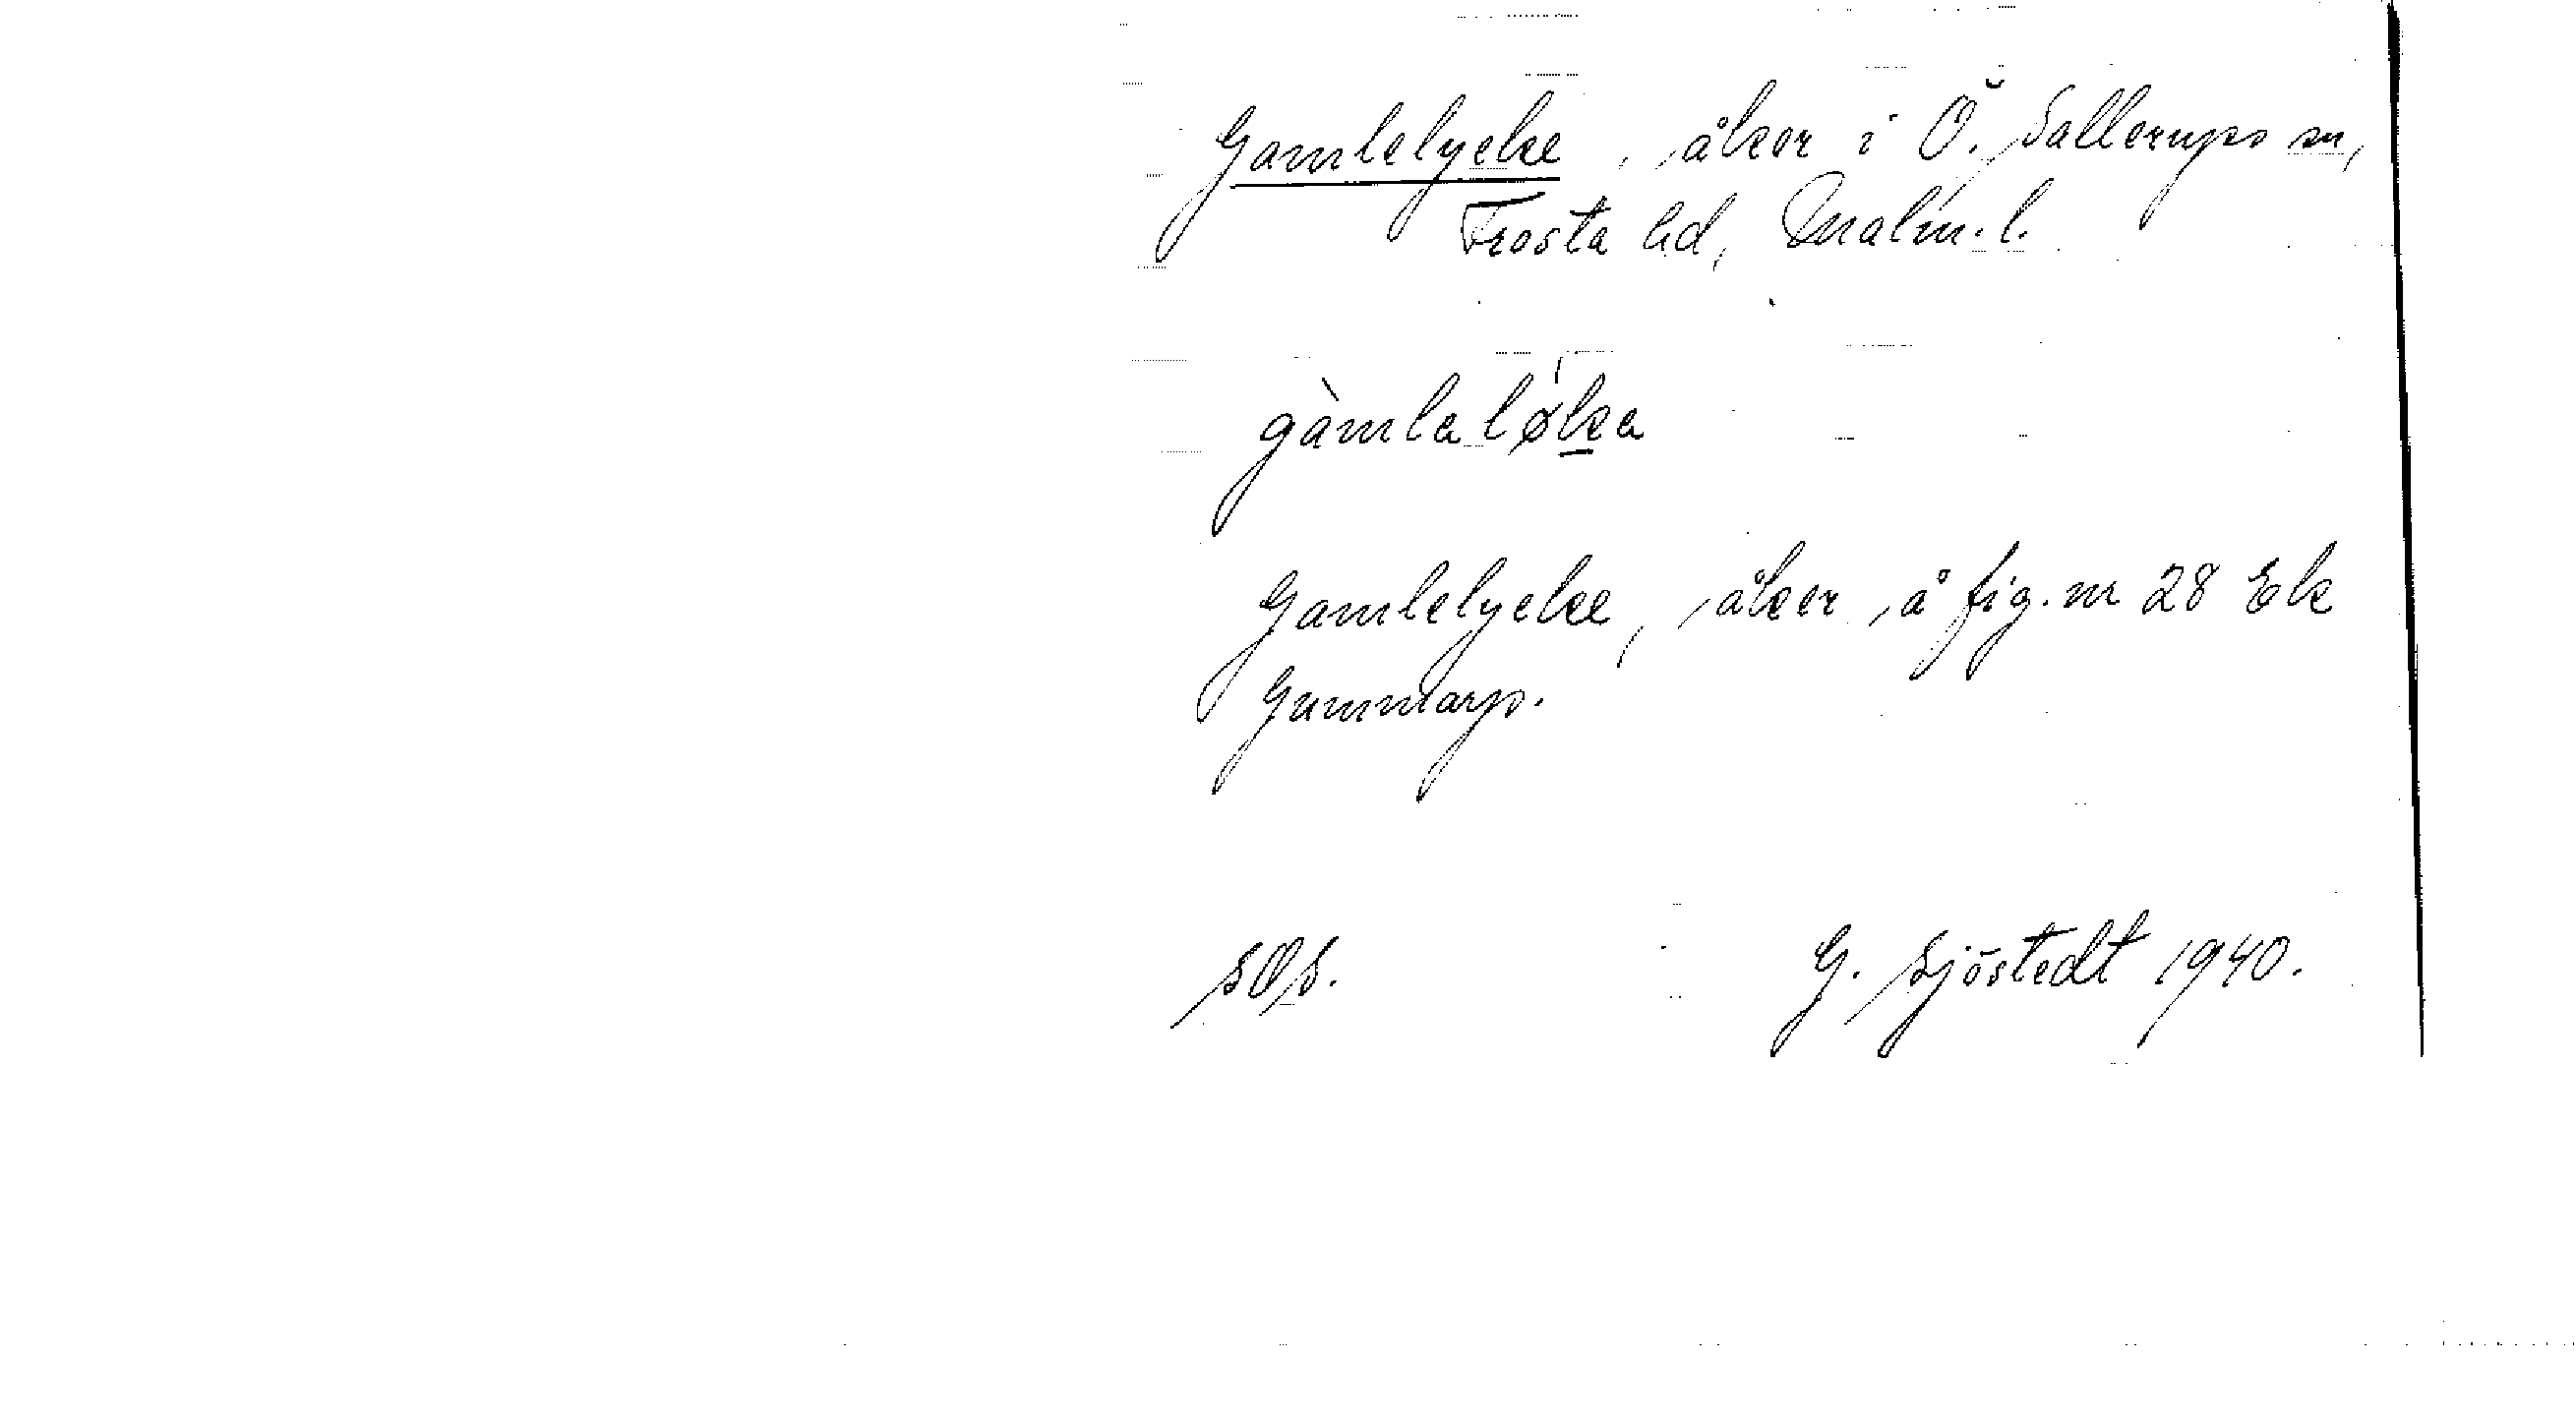 Gamlelycke, åker i Ö. Sallerups sn,
Frosta hd, Malm. l.
gàmlaløka
Gamlelycke, åker å fig. nr 28 Ek
Gummarp.
SOS.
G. Sjöstedt 1940.